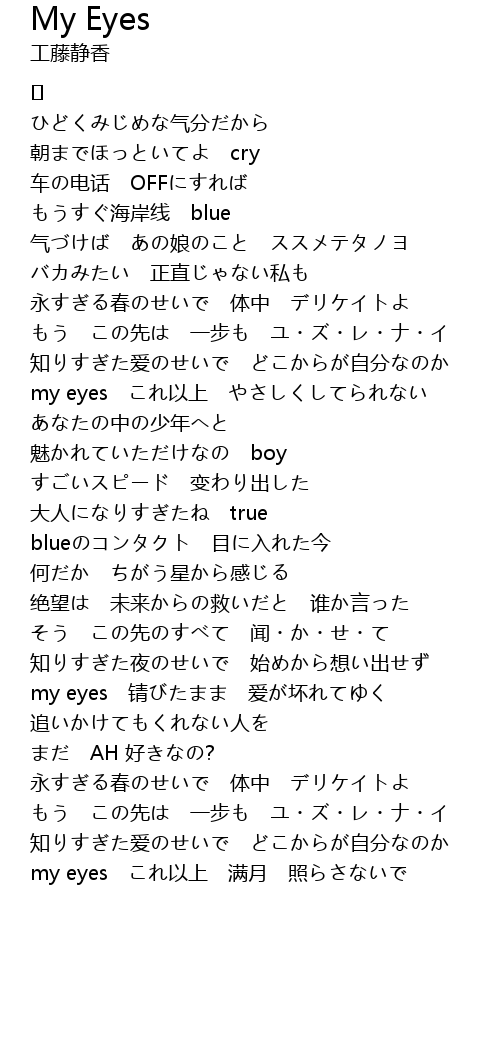 My Eyes
工藤静香
[]
ひどくみじめな气分だから
朝までほっといてよ　cry
车の电话　OFFにすれば
もうすぐ海岸线　blue
气づけば　あの娘のこと　ススメテタノヨ
バカみたい　正直じゃない私も
永すぎる春のせいで　体中　デリケイトよ
もう　この先は　一步も　ユ・ズ・レ・ナ・イ
知りすぎた爱のせいで　どこからが自分なのか
my eyes　これ以上　やさしくしてられない
あなたの中の少年へと
魅かれていただけなの　boy
すごいスピード　变わり出した
大人になりすぎたね　true
blueのコンタクト　目に入れた今
何だか　ちがう星から感じる
绝望は　未来からの救いだと　谁か言った
そう　この先のすべて　闻・か・せ・て
知りすぎた夜のせいで　始めから想い出せず
my eyes　锖びたまま　爱が坏れてゆく
追いかけてもくれない人を
まだ　AH 好きなの?
永すぎる春のせいで　体中　デリケイトよ
もう　この先は　一步も　ユ・ズ・レ・ナ・イ
知りすぎた爱のせいで　どこからが自分なのか
my eyes　これ以上　满月　照らさないで